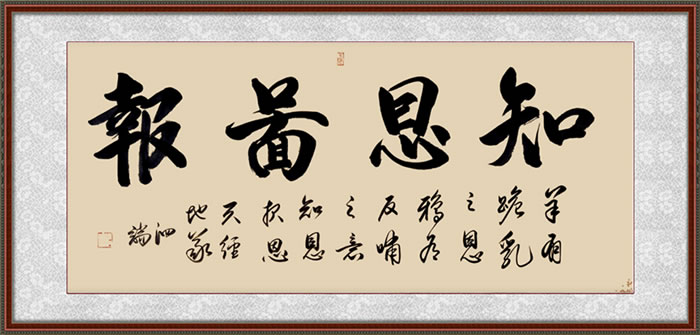 知恩圖報
羊有
跪乳
之恩
鴉有
反哺
之意
知恩
报恩
天經
地義
泗
端